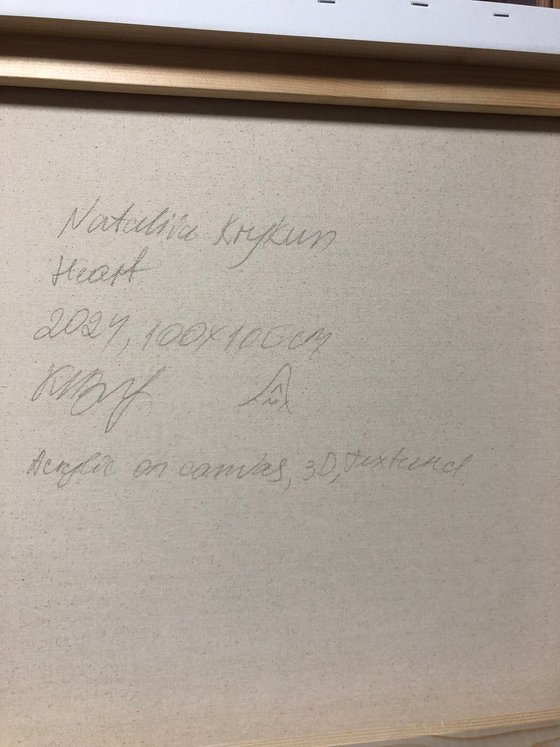 Nataliia Krykun
Heart
2024, 100x100cm
Acrylic on canvas, 3D, textured